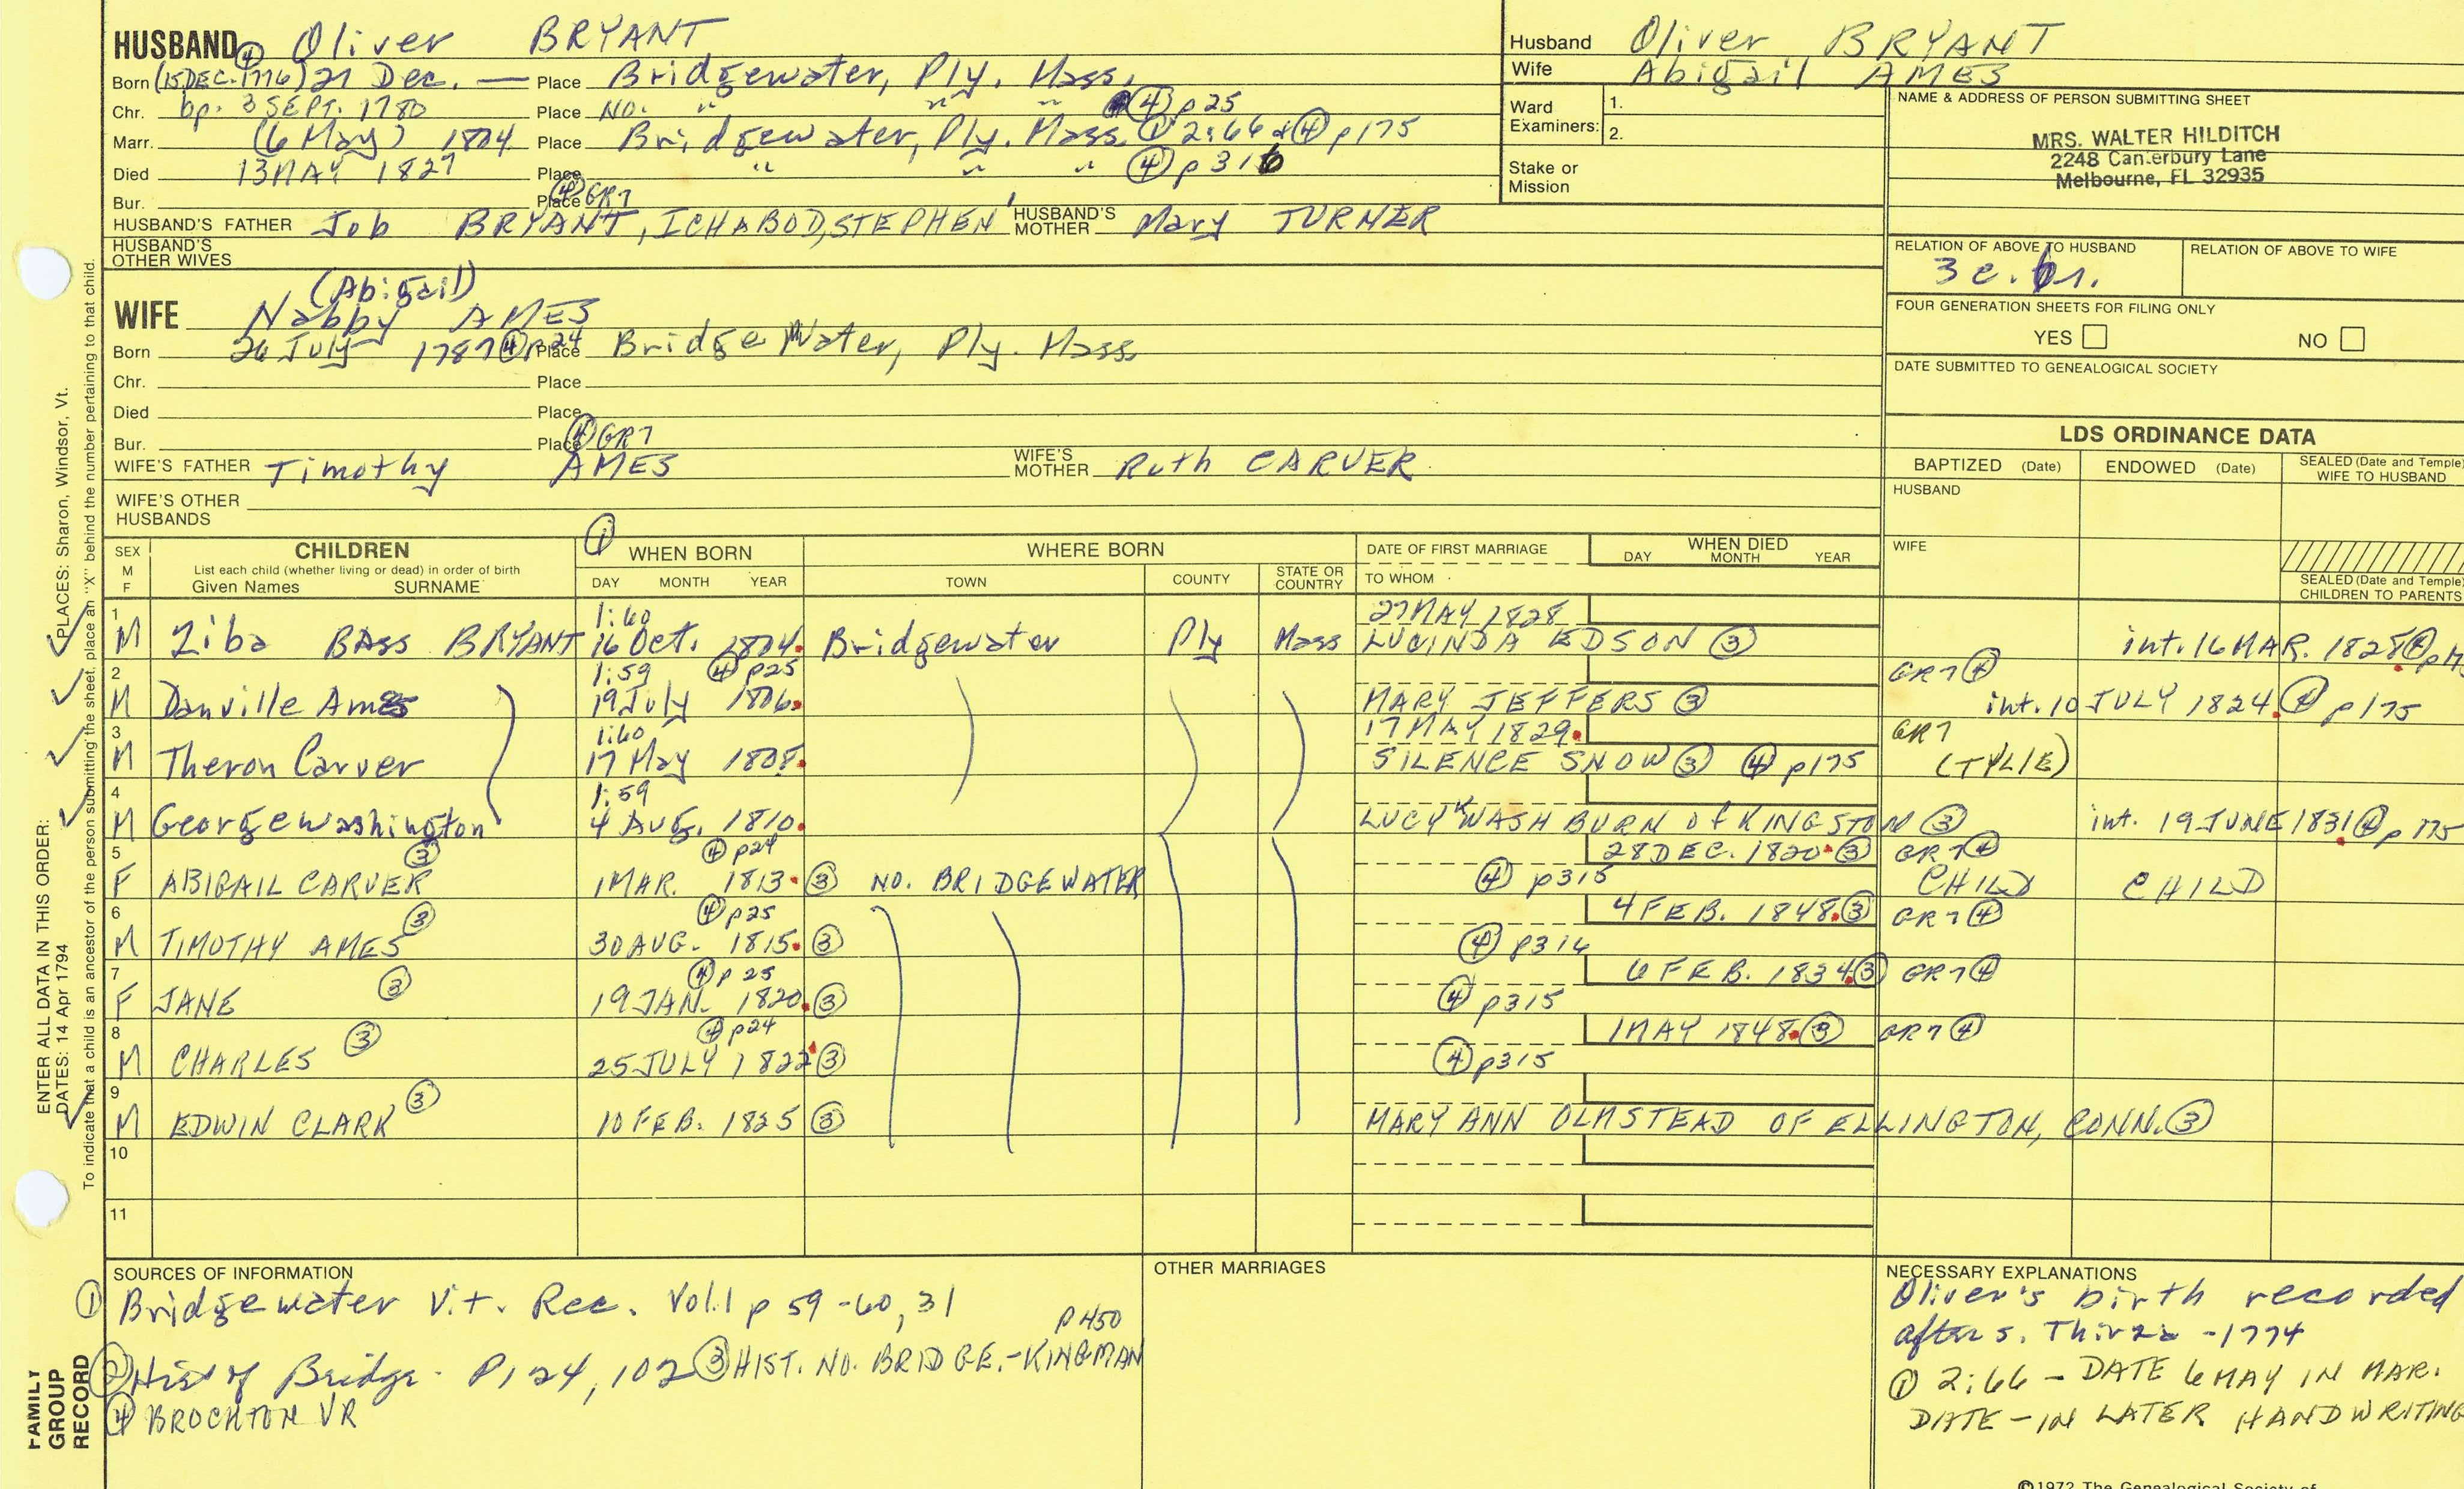 HUSBAND ④ Oliver BRYANT
Born (15 DEC. 1776) 21 Dec. — Place Bridgewater, Ply. Mass.
Chr. bp. 3 SEPT. 1780 Place No. " " " ④ p25
Marr. (6 May) 1804 Place Bridgewater, Ply. Mass. ① 2:66 & ④ p175
Died 13 MAY 1827 Place " " " ④ p316
Bur. Place ④ GR7
HUSBAND'S FATHER Job BRYANT, ICHABOD, STEPHEN HUSBAND'S MOTHER Mary TURNER
HUSBAND'S OTHER WIVES
Husband Oliver BRYANT
Wife Abigail AMES
Ward Examiners: 1.
2.
Stake or Mission
NAME & ADDRESS OF PERSON SUBMITTING SHEET
MRS. WALTER HILDITCH
2248 Canterbury Lane
Melbourne, FL 32935
RELATION OF ABOVE TO HUSBAND
3 c. br.
RELATION OF ABOVE TO WIFE
FOUR GENERATION SHEETS FOR FILING ONLY
YES NO
DATE SUBMITTED TO GENEALOGICAL SOCIETY
(Abigail)
WIFE Nabby AMES
Born 26 July 1787 ④ p24 Place Bridge Water, Ply. Mass
Chr. Place
Died Place
Bur. Place ④ GR7
WIFE'S FATHER Timothy AMES WIFE'S MOTHER Ruth CARVER
WIFE'S OTHER HUSBANDS
LDS ORDINANCE DATA
BAPTIZED (Date) ENDOWED (Date) SEALED (Date and Temple) WIFE TO HUSBAND
HUSBAND
WIFE
SEALED (Date and Temple) CHILDREN TO PARENTS
SEX M F
CHILDREN
List each child (whether living or dead) in order of birth
Given Names SURNAME
① WHEN BORN
DAY MONTH YEAR
WHERE BORN
TOWN COUNTY STATE OR COUNTRY
DATE OF FIRST MARRIAGE
TO WHOM
WHEN DIED
DAY MONTH YEAR
1 1:60 27 MAY 1828
M Ziba BASS BRYANT 16 Oct. 1804. Bridgewater Ply Mass LUCINDA EDSON ③ int. 16 MAR. 1828 ④
2 1:59 ④ p25 GR7 ④
M Danville Ames 19 July 1806. MARY JEFFERS ③ int. 10 JULY 1824. ④ p175
3 1:60 17 MAY 1829. GR7
M Theron Carver 17 May 1808. SILENCE SNOW ③ ④ p175 (TYLIE)
4 1:59
M George Washington 4 AUG. 1810. LUCY K WASHBURN of KINGSTON ③ int. 19 JUNE 1831 ④ p175
5 ③ ④ p24 28 DEC. 1820. ③ GR7 ④
F ABIGAIL CARVER 1 MAR. 1813. ③ NO. BRIDGEWATER ④ p315 CHILD CHILD
6 ③ ④ p25 4 FEB. 1848. ③ GR7 ④
M TIMOTHY AMES 30 AUG. 1815. ③ ④ p316
7 ③ ④ p25 6 FEB. 1834. ③ GR7 ④
F JANE 19 JAN. 1820. ③ ④ p315
8 ③ ④ p24 1 MAY 1848. ③ GR7 ④
M CHARLES 25 JULY 1822 ③ ④ p315
9 ③
M EDWIN CLARK 10 FEB. 1825 ③ MARY ANN OLMSTEAD OF ELLINGTON, CONN. ③
10
11
SOURCES OF INFORMATION
① Bridgewater Vit. Rec. Vol.1 p 59-60, 31
p450
② Hist of Bridge. P124, 102 ③ HIST. NO. BRIDGE.-KINGMAN
④ BROCKTON VR
OTHER MARRIAGES
NECESSARY EXPLANATIONS
Oliver's birth recorded
after s. Thirza -1774
① 2:66 - DATE 6 MAY IN MAR.
DATE - IN LATER HANDWRITING
©1972 The Genealogical Society of
ENTER ALL DATA IN THIS ORDER:
DATES: 14 Apr 1794 PLACES: Sharon, Windsor, Vt.
To indicate that a child is an ancestor of the person submitting the sheet, place an "X" behind the number pertaining to that child.
FAMILY GROUP RECORD